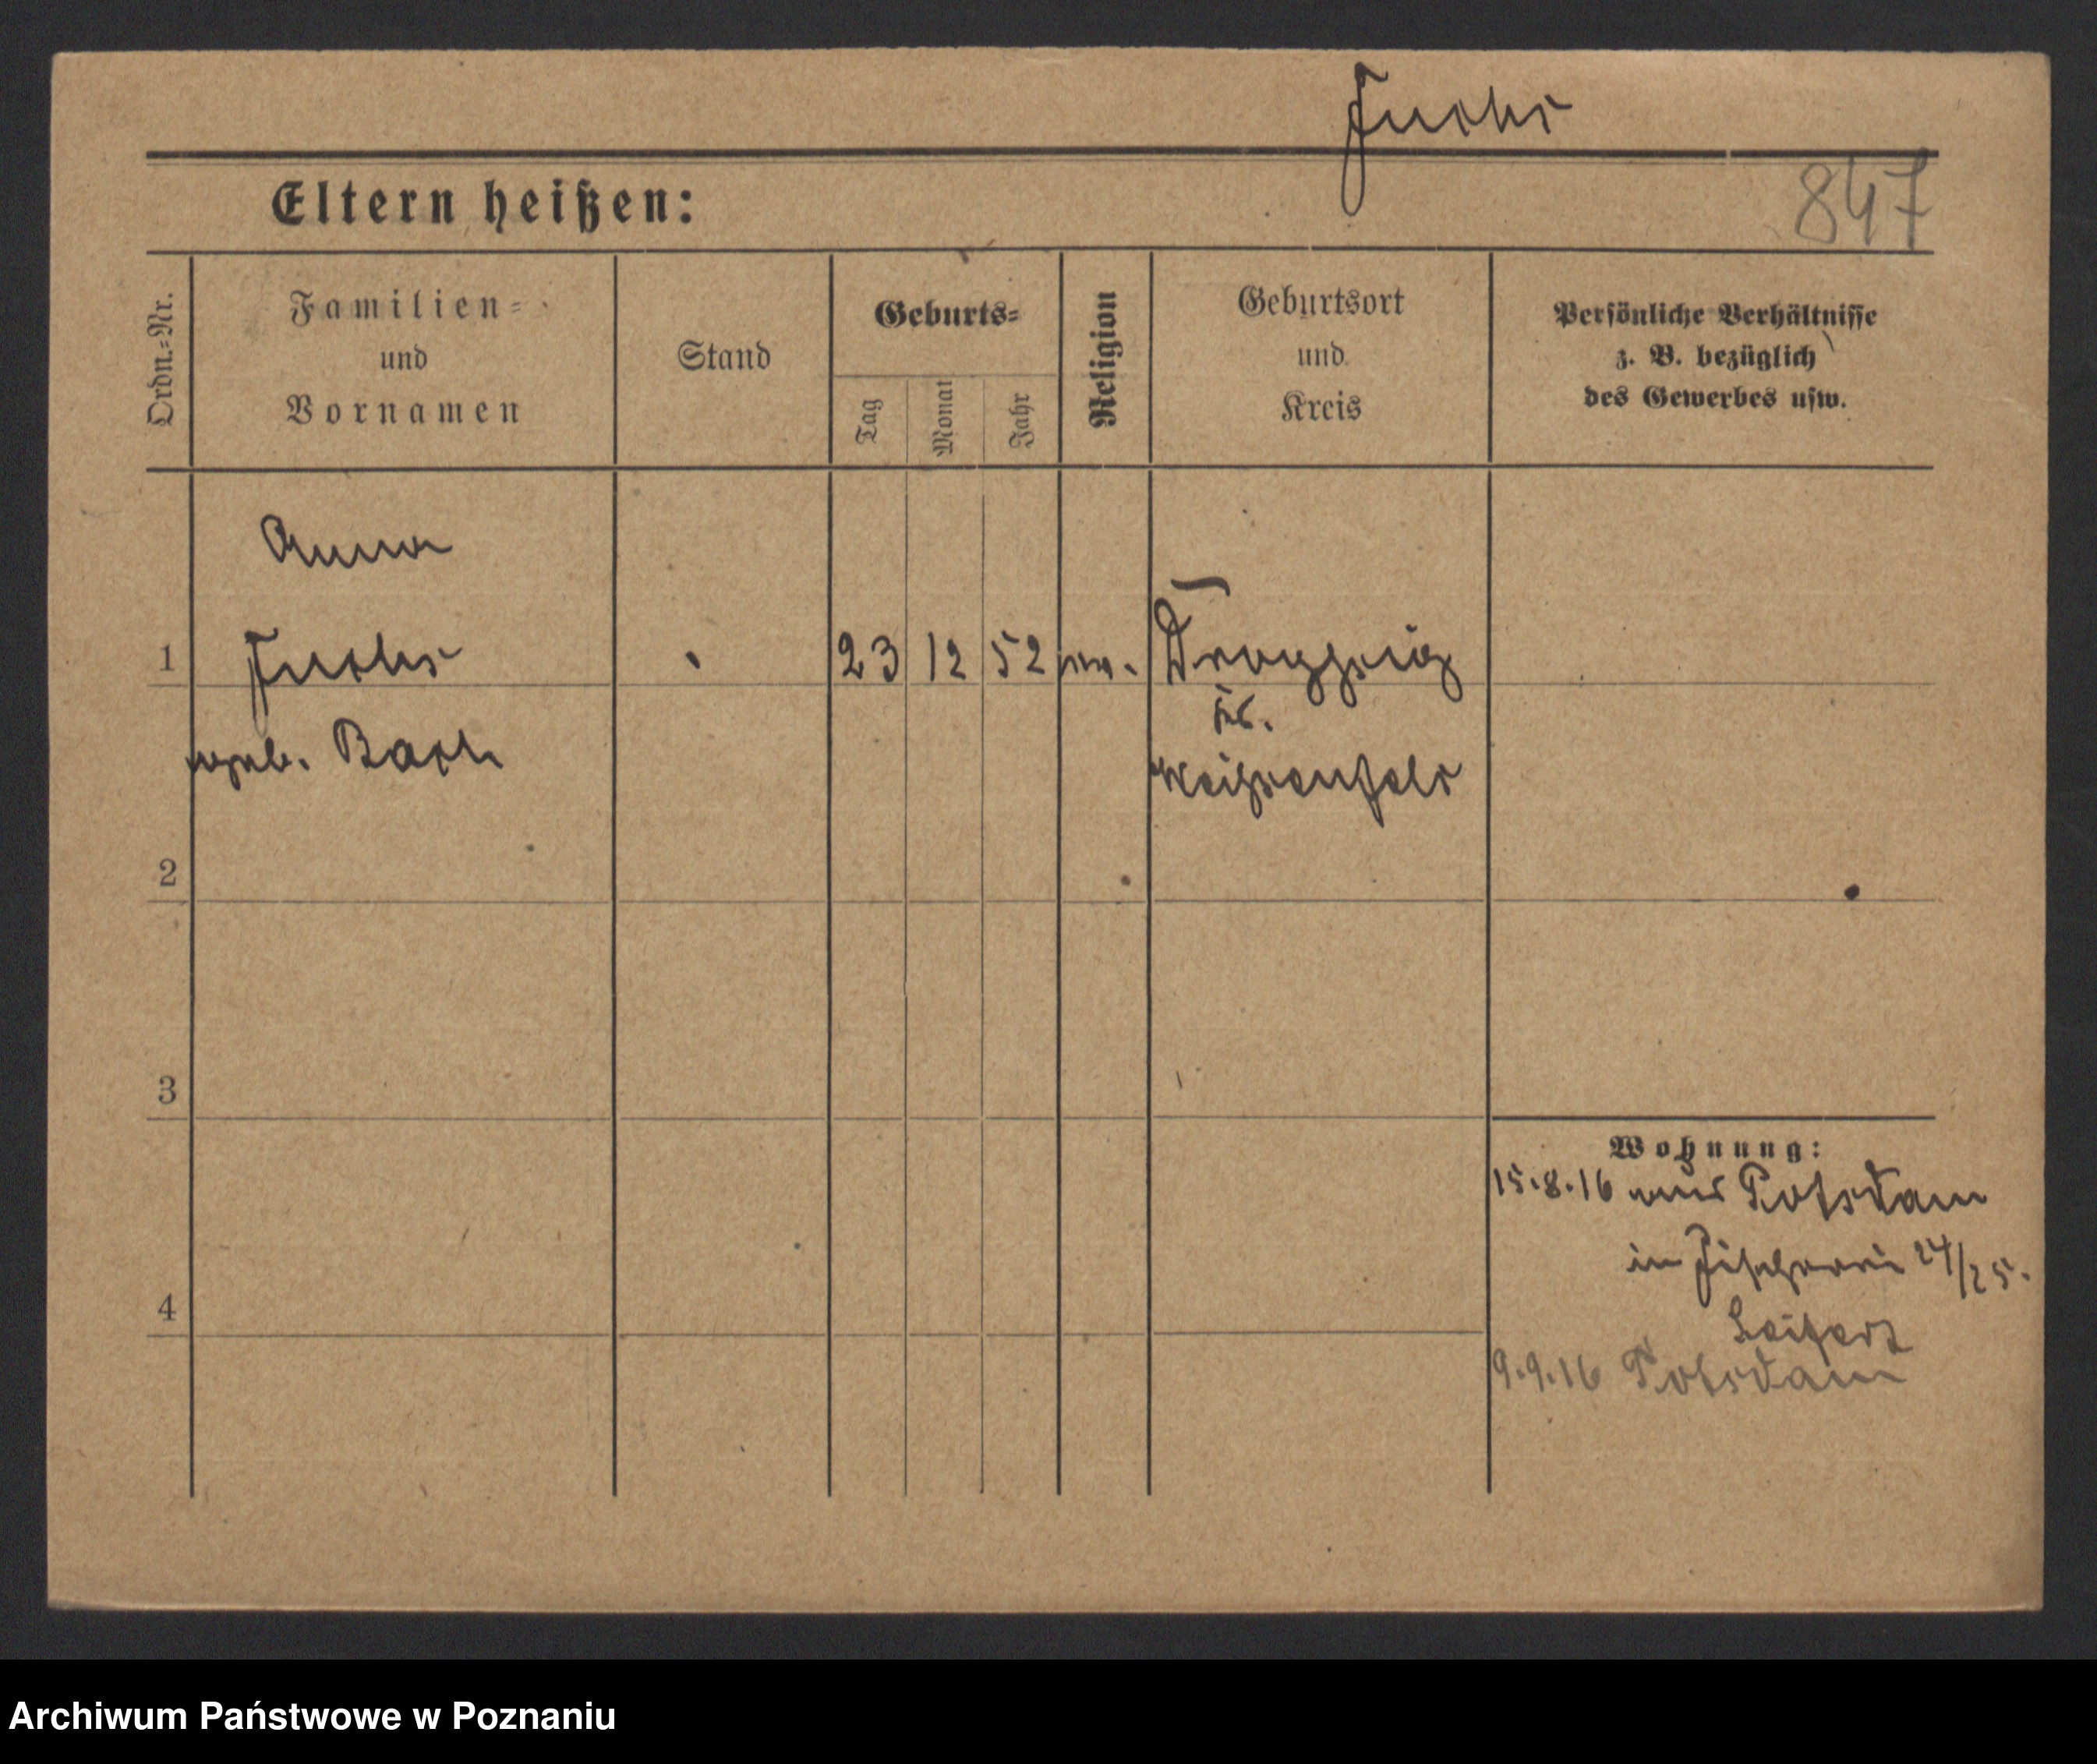 Fuchs
847
Eltern heißen:
Ordn.-Nr.
Familien-
und
Vornamen
Stand
Geburts-
Tag
Monat
Jahr
Religion
Geburtsort
und
Kreis
Persönliche Verhältnisse
z. B. bezüglich
des Gewerbes usw.
Anna
1 Fuchs 23 12 52 ev. Droyssig
Kr.
geb. Bach Weißenfels
2
3
Wohnung:
15.8.16 aus Potsdam
in Fischerei 24/25.
4
9.9.16 Potsdam
Archiwum Państwowe w Poznaniu